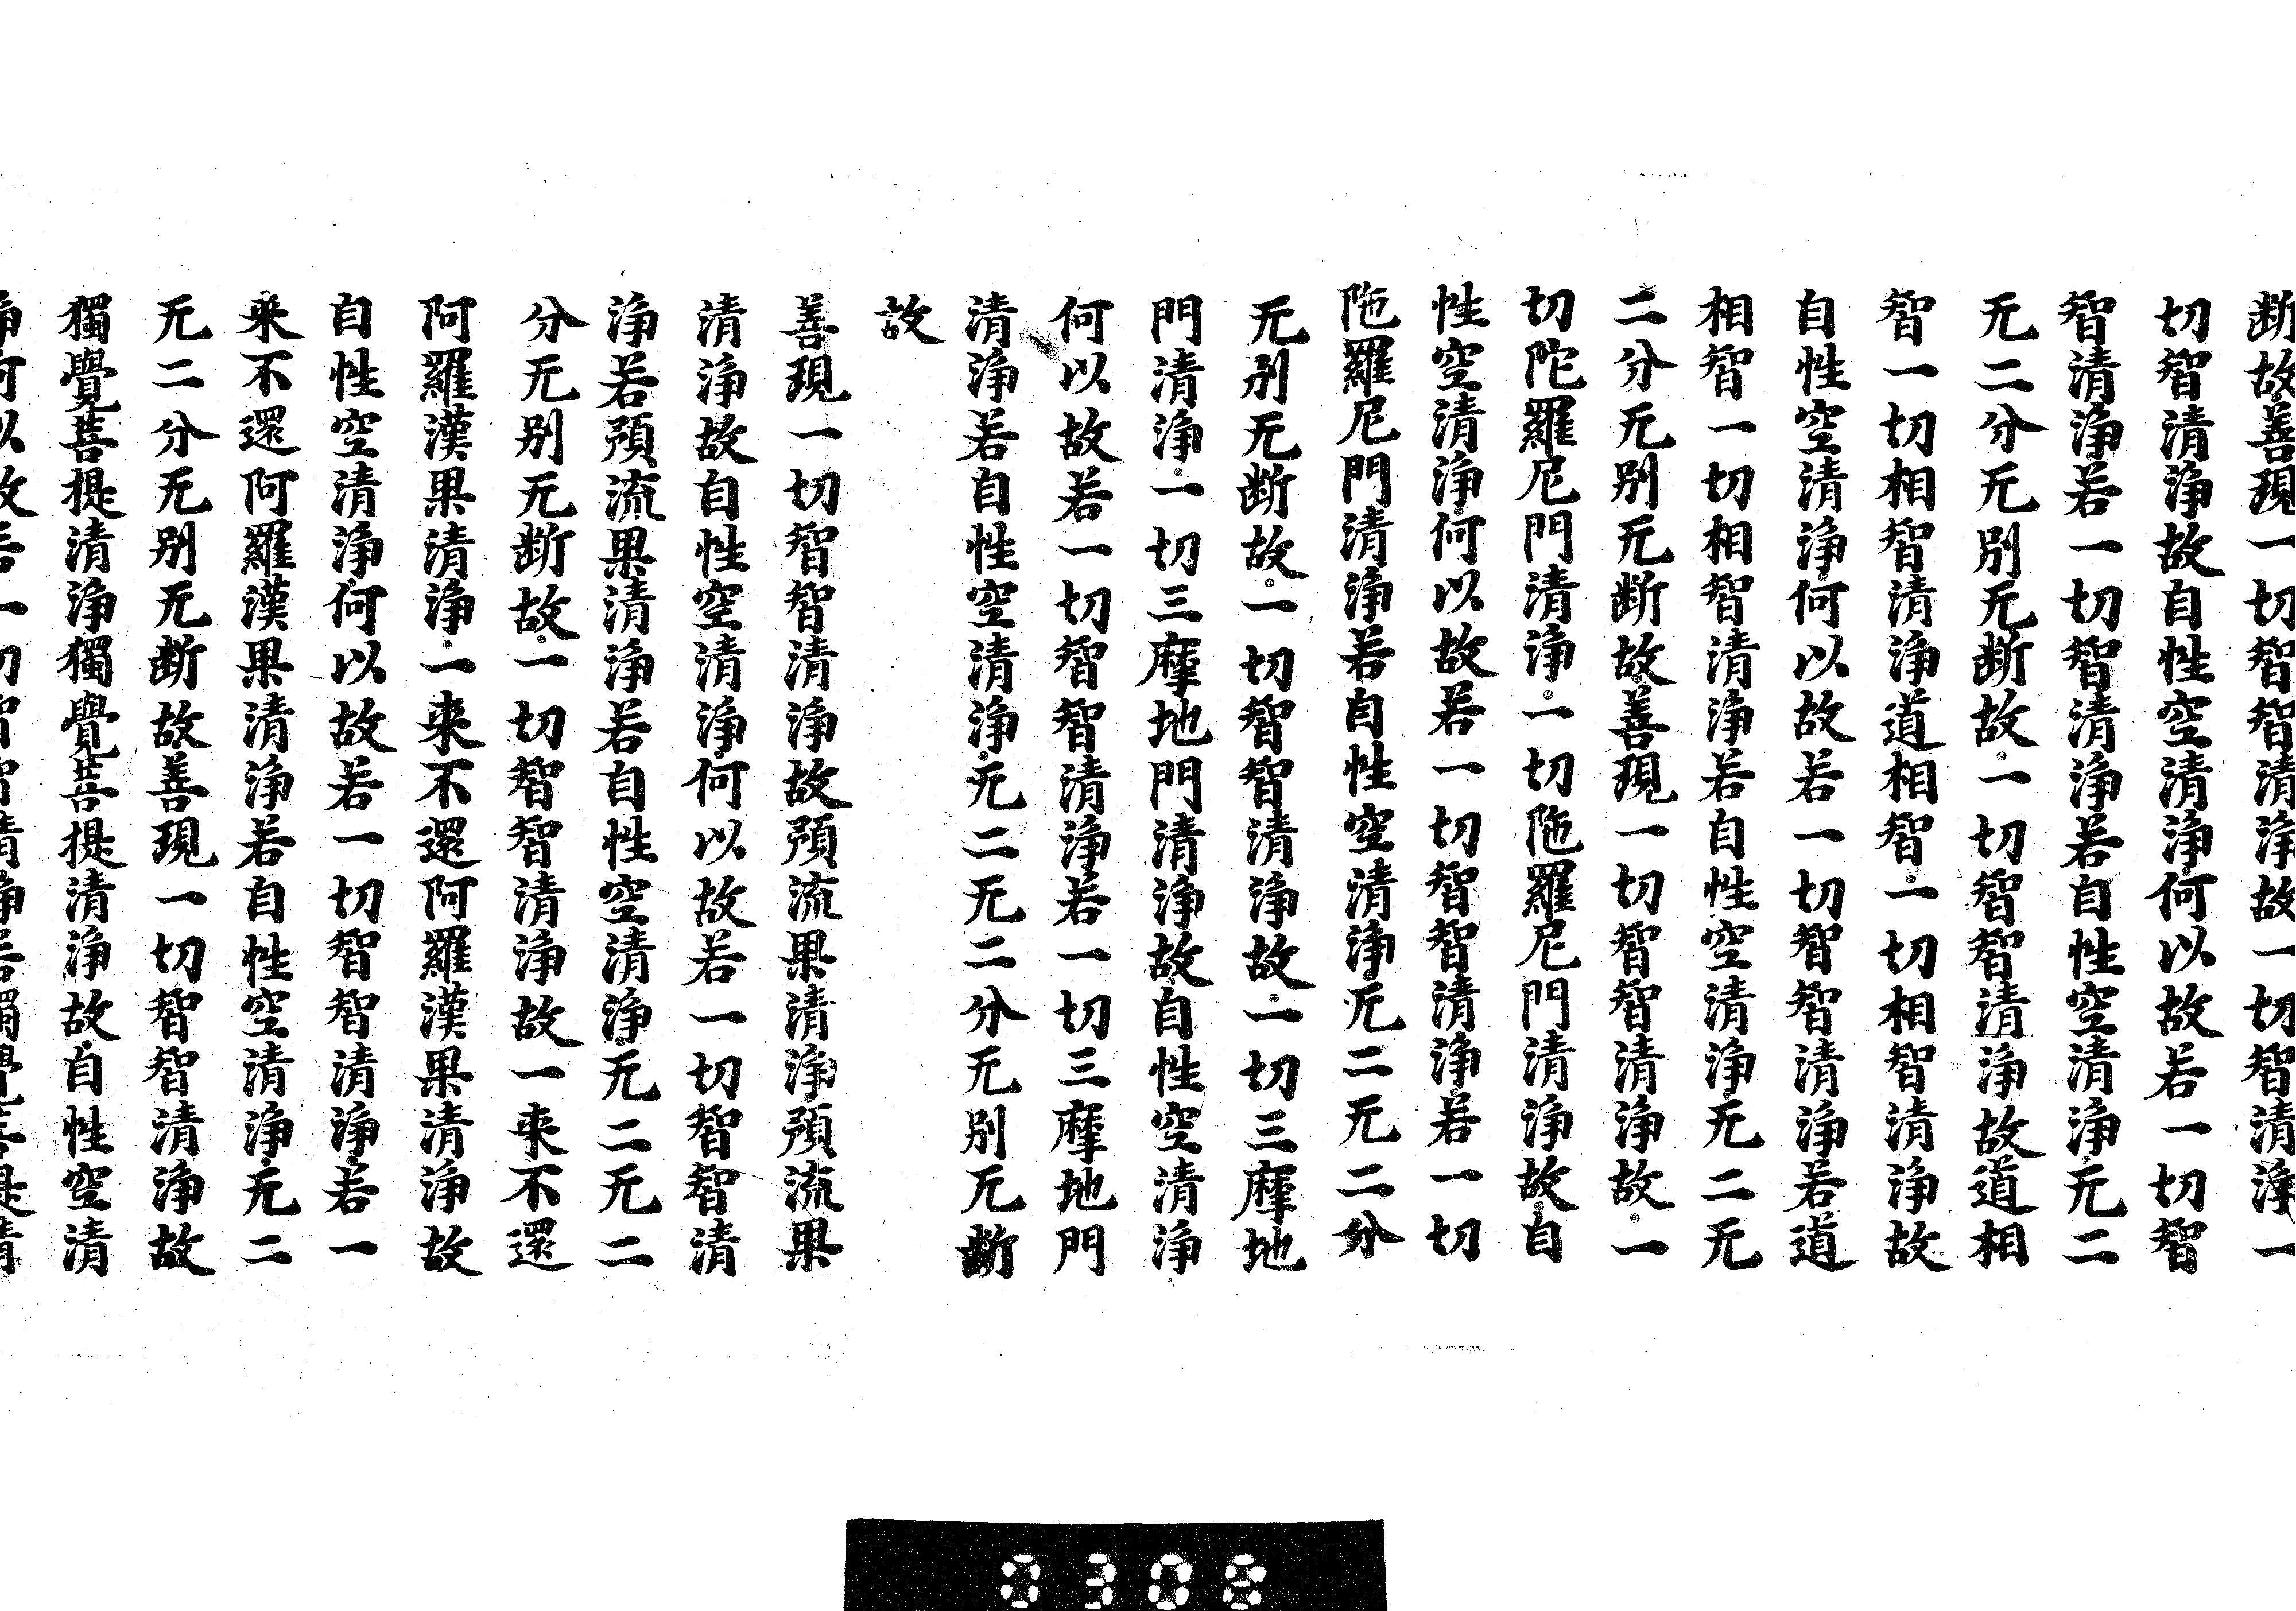 断故善現一切智智清淨故一切智清淨一
切智清淨故自性空清淨何以故若一切智
智清淨若一切智清淨若自性空清淨无二
无二分无別无断故一切智智清淨故道相
智一切相智清淨道相智一切相智清淨故
自性空清淨何以故若一切智智清淨若道
相智一切相智清淨若自性空清淨无二无
二分无別无断故善現一切智智清淨故一
切陀羅尼門清淨一切陁羅尼門清淨故自
性空清淨何以故若一切智智清淨若一切
陁羅尼門清淨若自性空清淨无二无二分
无別无断故一切智智清淨故一切三摩地
門清淨一切三摩地門清淨故自性空清淨
何以故若一切智智清淨若一切三摩地門
清淨若自性空清淨无二无二分无別无斷
故
善現一切智智清淨故預流果清淨預流果
清淨故自性空清淨何以故若一切智智清
淨若預流果清淨若自性空清淨无二无二
分无別无断故一切智智清淨故一来不還
阿羅漢果清淨一来不還阿羅漢果清淨故
自性空清淨何以故若一切智智清淨若一
来不還阿羅漢果清淨若自性空清淨无二
无二分无別无断故善現一切智智清淨故
獨覺菩提清淨獨覺菩提清淨故自性空清
淨何以故若一切智智清淨若獨覺菩提清
0308